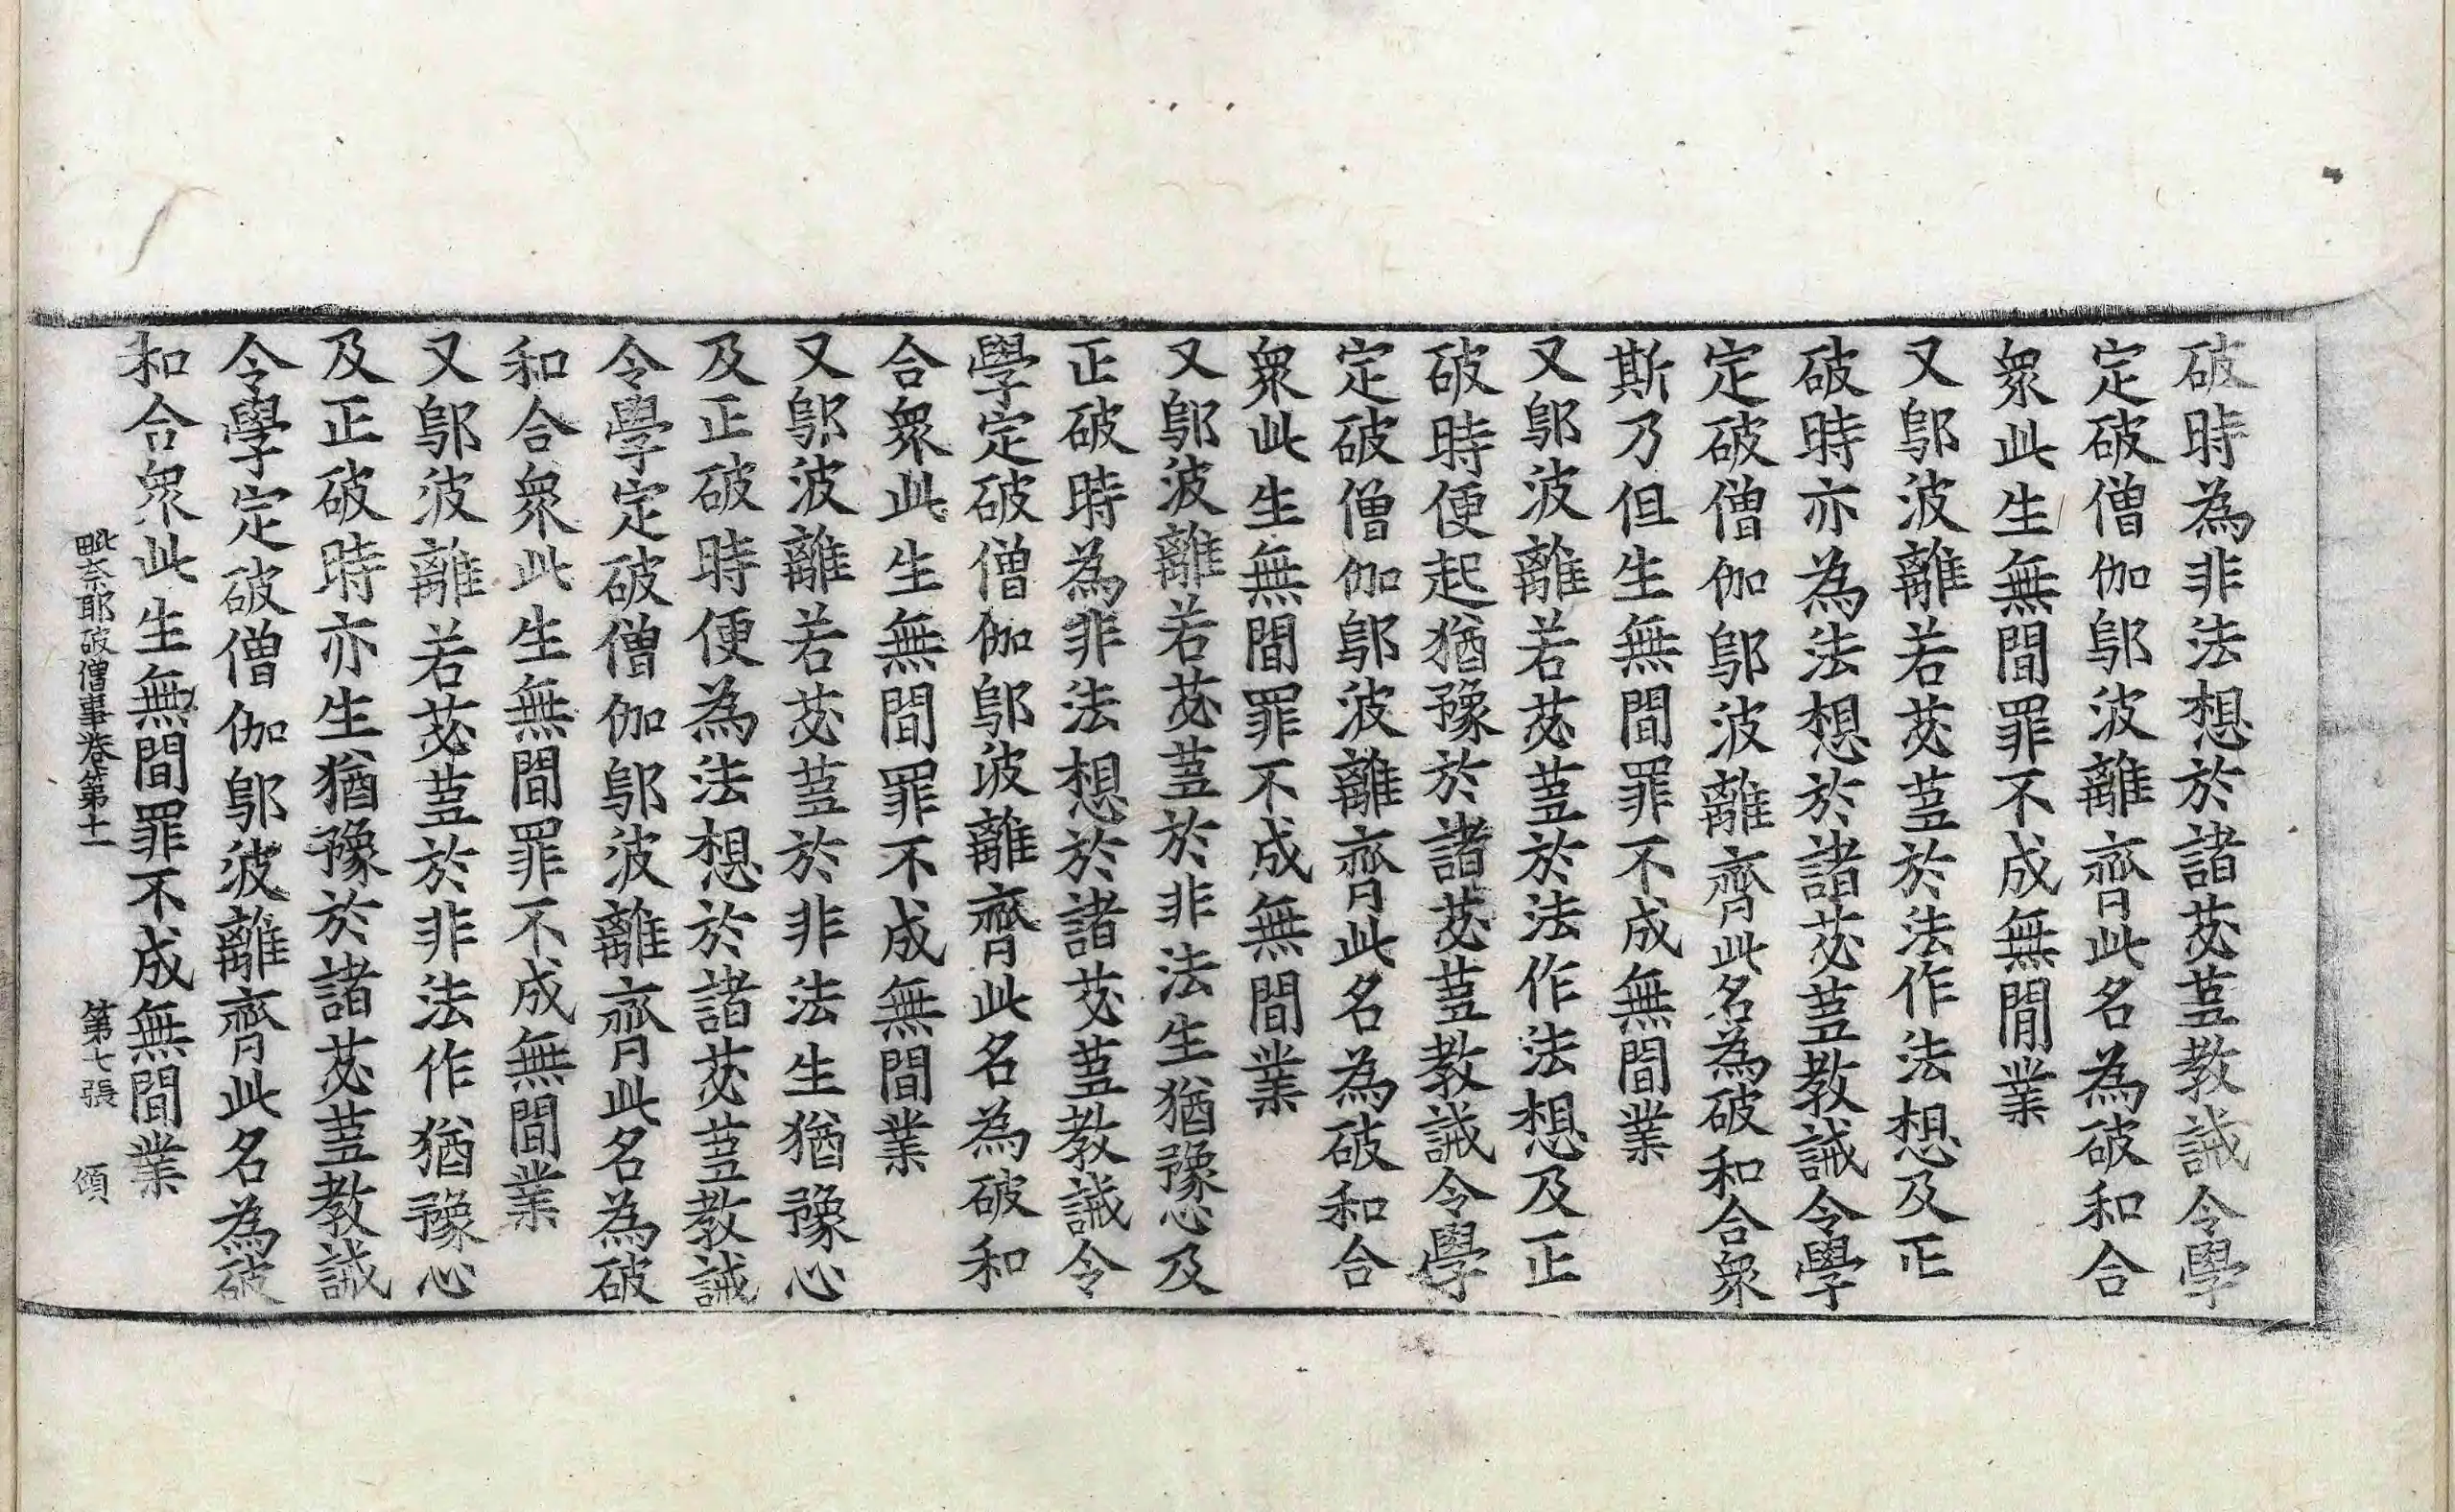 破時為非法想於諸苾蒭教誡令學
定破僧伽鄔波離齊此名為破和合
衆此生無間罪不成無間業
又鄔波離若苾蒭於法作法想及正
破時亦為法想於諸苾蒭教誡令學
定破僧伽鄔波離齊此名為破和合衆
斯乃但生無間罪不成無間業
又鄔波離若苾蒭於法作法想及正
破時便起猶豫於諸苾蒭教誡令學
定破僧伽鄔波離齊此名為破和合
衆此生無間罪不成無間業
又鄔波離若苾蒭於非法生猶豫心及
正破時為非法想於諸苾蒭教誡令
學定破僧伽鄔波離齊此名為破和
合衆此生無間罪不成無間業
又鄔波離若苾蒭於非法生猶豫心
及正破時便為法想於諸苾蒭教誡
令學定破僧伽鄔波離齊此名為破
和合衆此生無間罪不成無間業
又鄔波離若苾蒭於非法作猶豫心
及正破時亦生猶豫於諸苾蒭教誡
令學定破僧伽鄔波離齊此名為破
和合衆此生無間罪不成無間業
毗奈耶破僧事卷第十一 第七張 頎